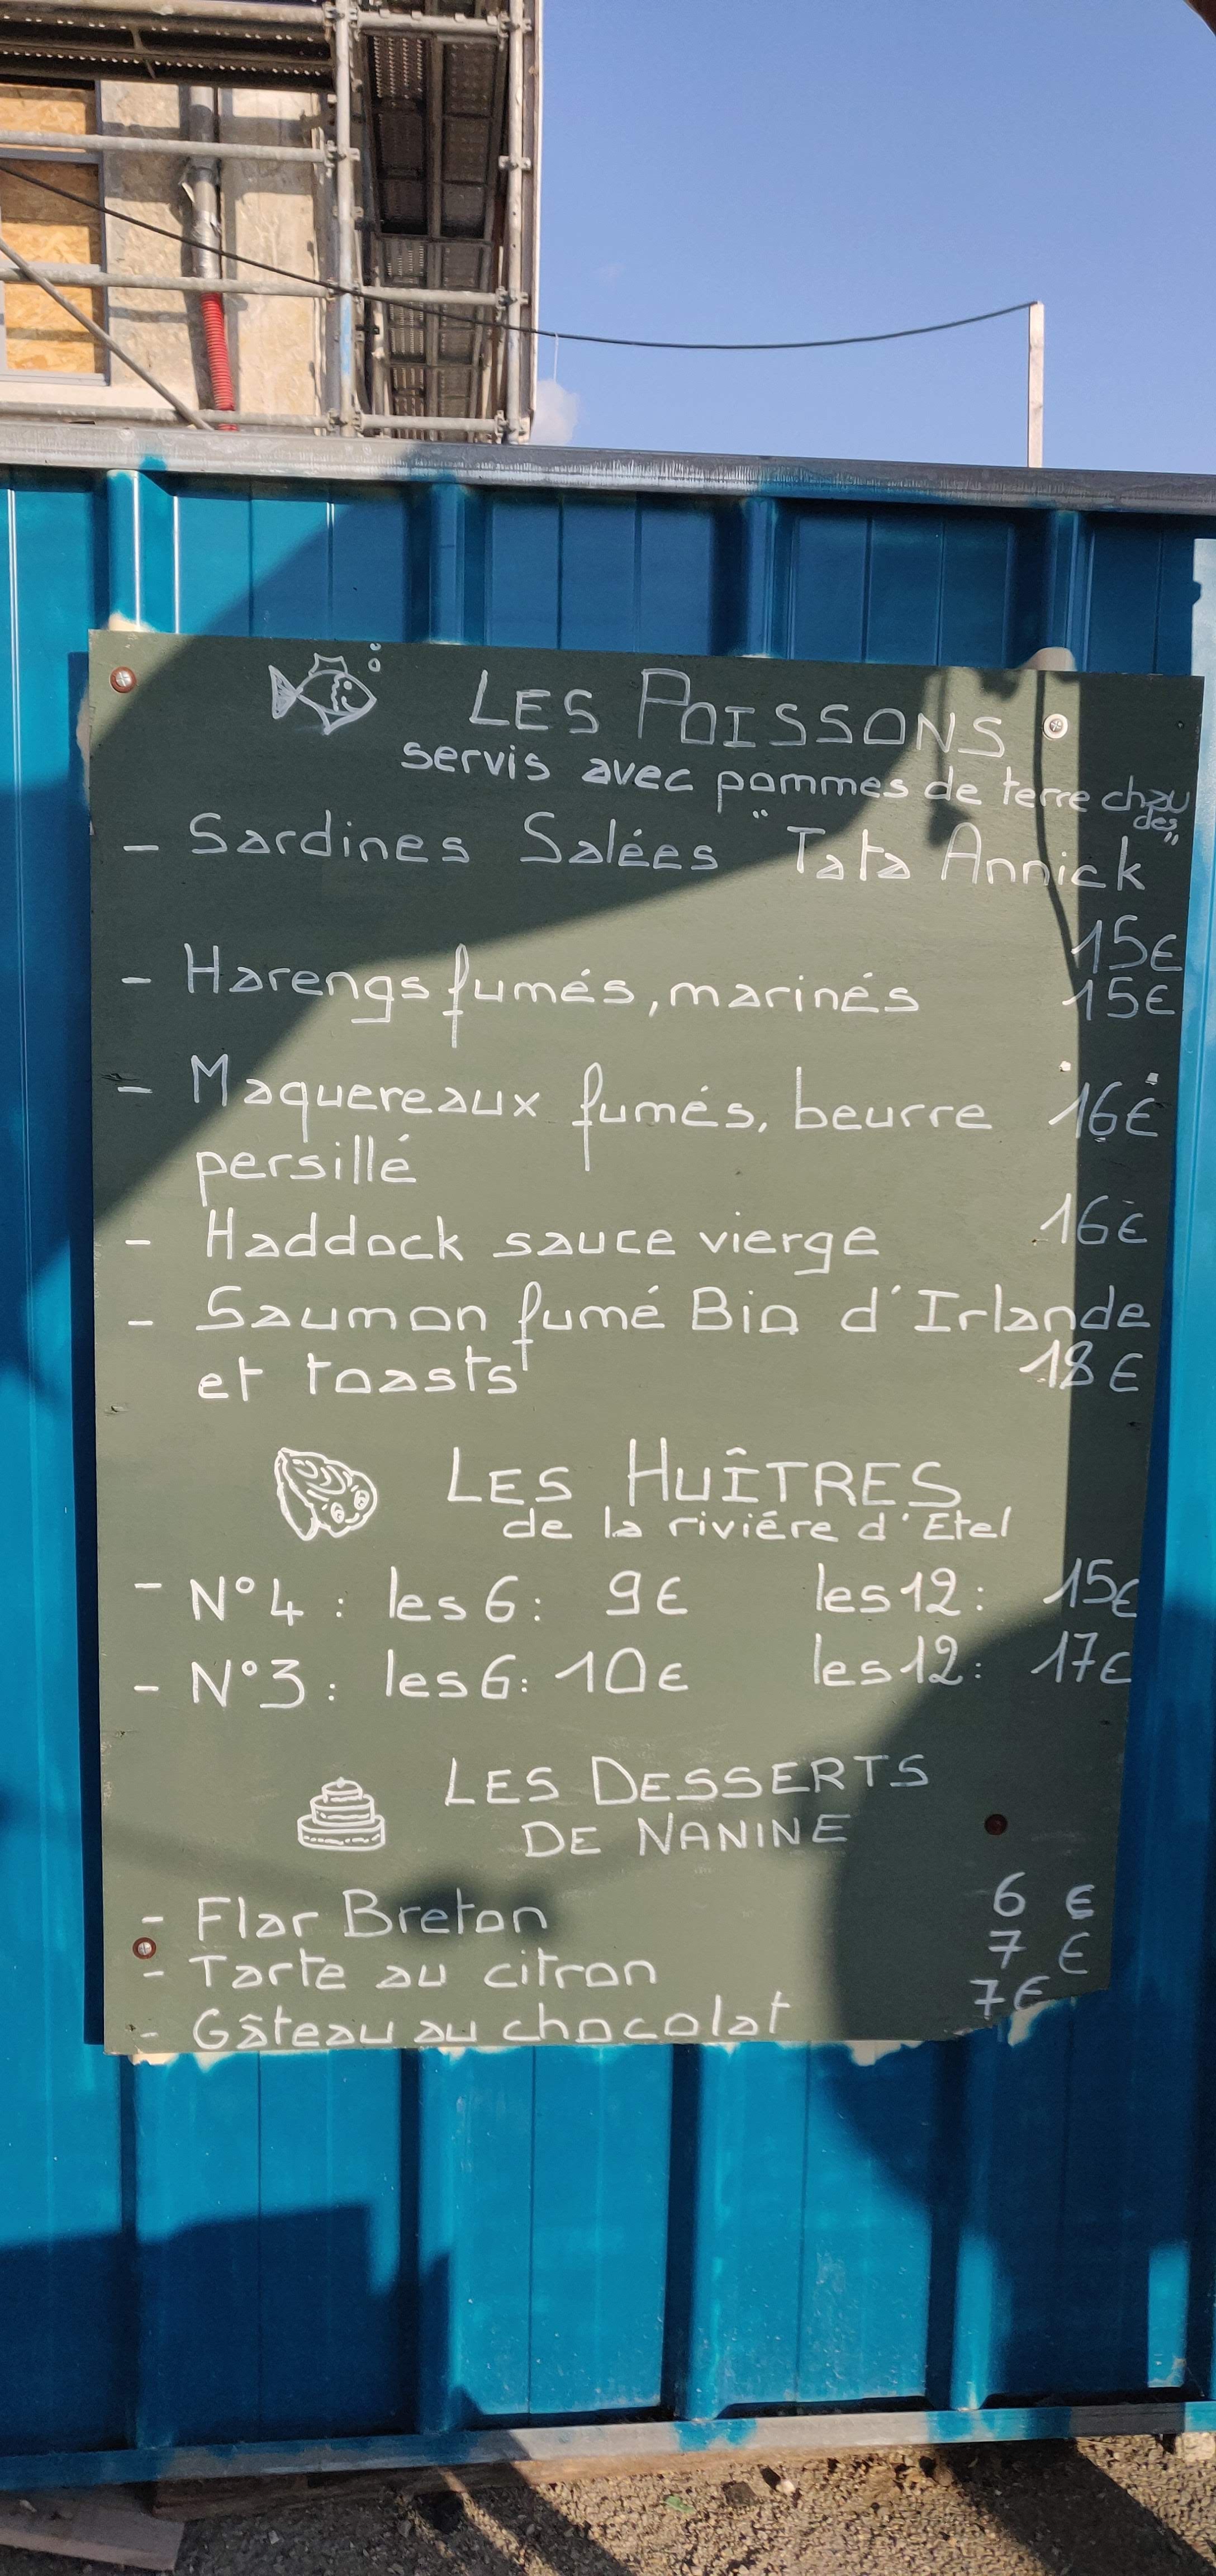 LES POISSONS
servis avec pommes de terre chau
des
- Sardines Salées "Tata Annick"
15€
- Harengs fumés, marinés 15€
- Maquereaux fumés, beurre 16€
persillé
- Haddock sauce vierge 16€
- Saumon fumé Bio d'Irlande
et toasts 18€
LES HUÎTRES
de la riviére d'Etel
- N°4 : les 6 : 9€ les 12 : 15€
- N°3 : les 6 : 10€ les 12 : 17€
LES DESSERTS
DE NANINE
- Flar Breton 6 €
- Tarte au citron 7 €
- Gâteau au chocolat 7€